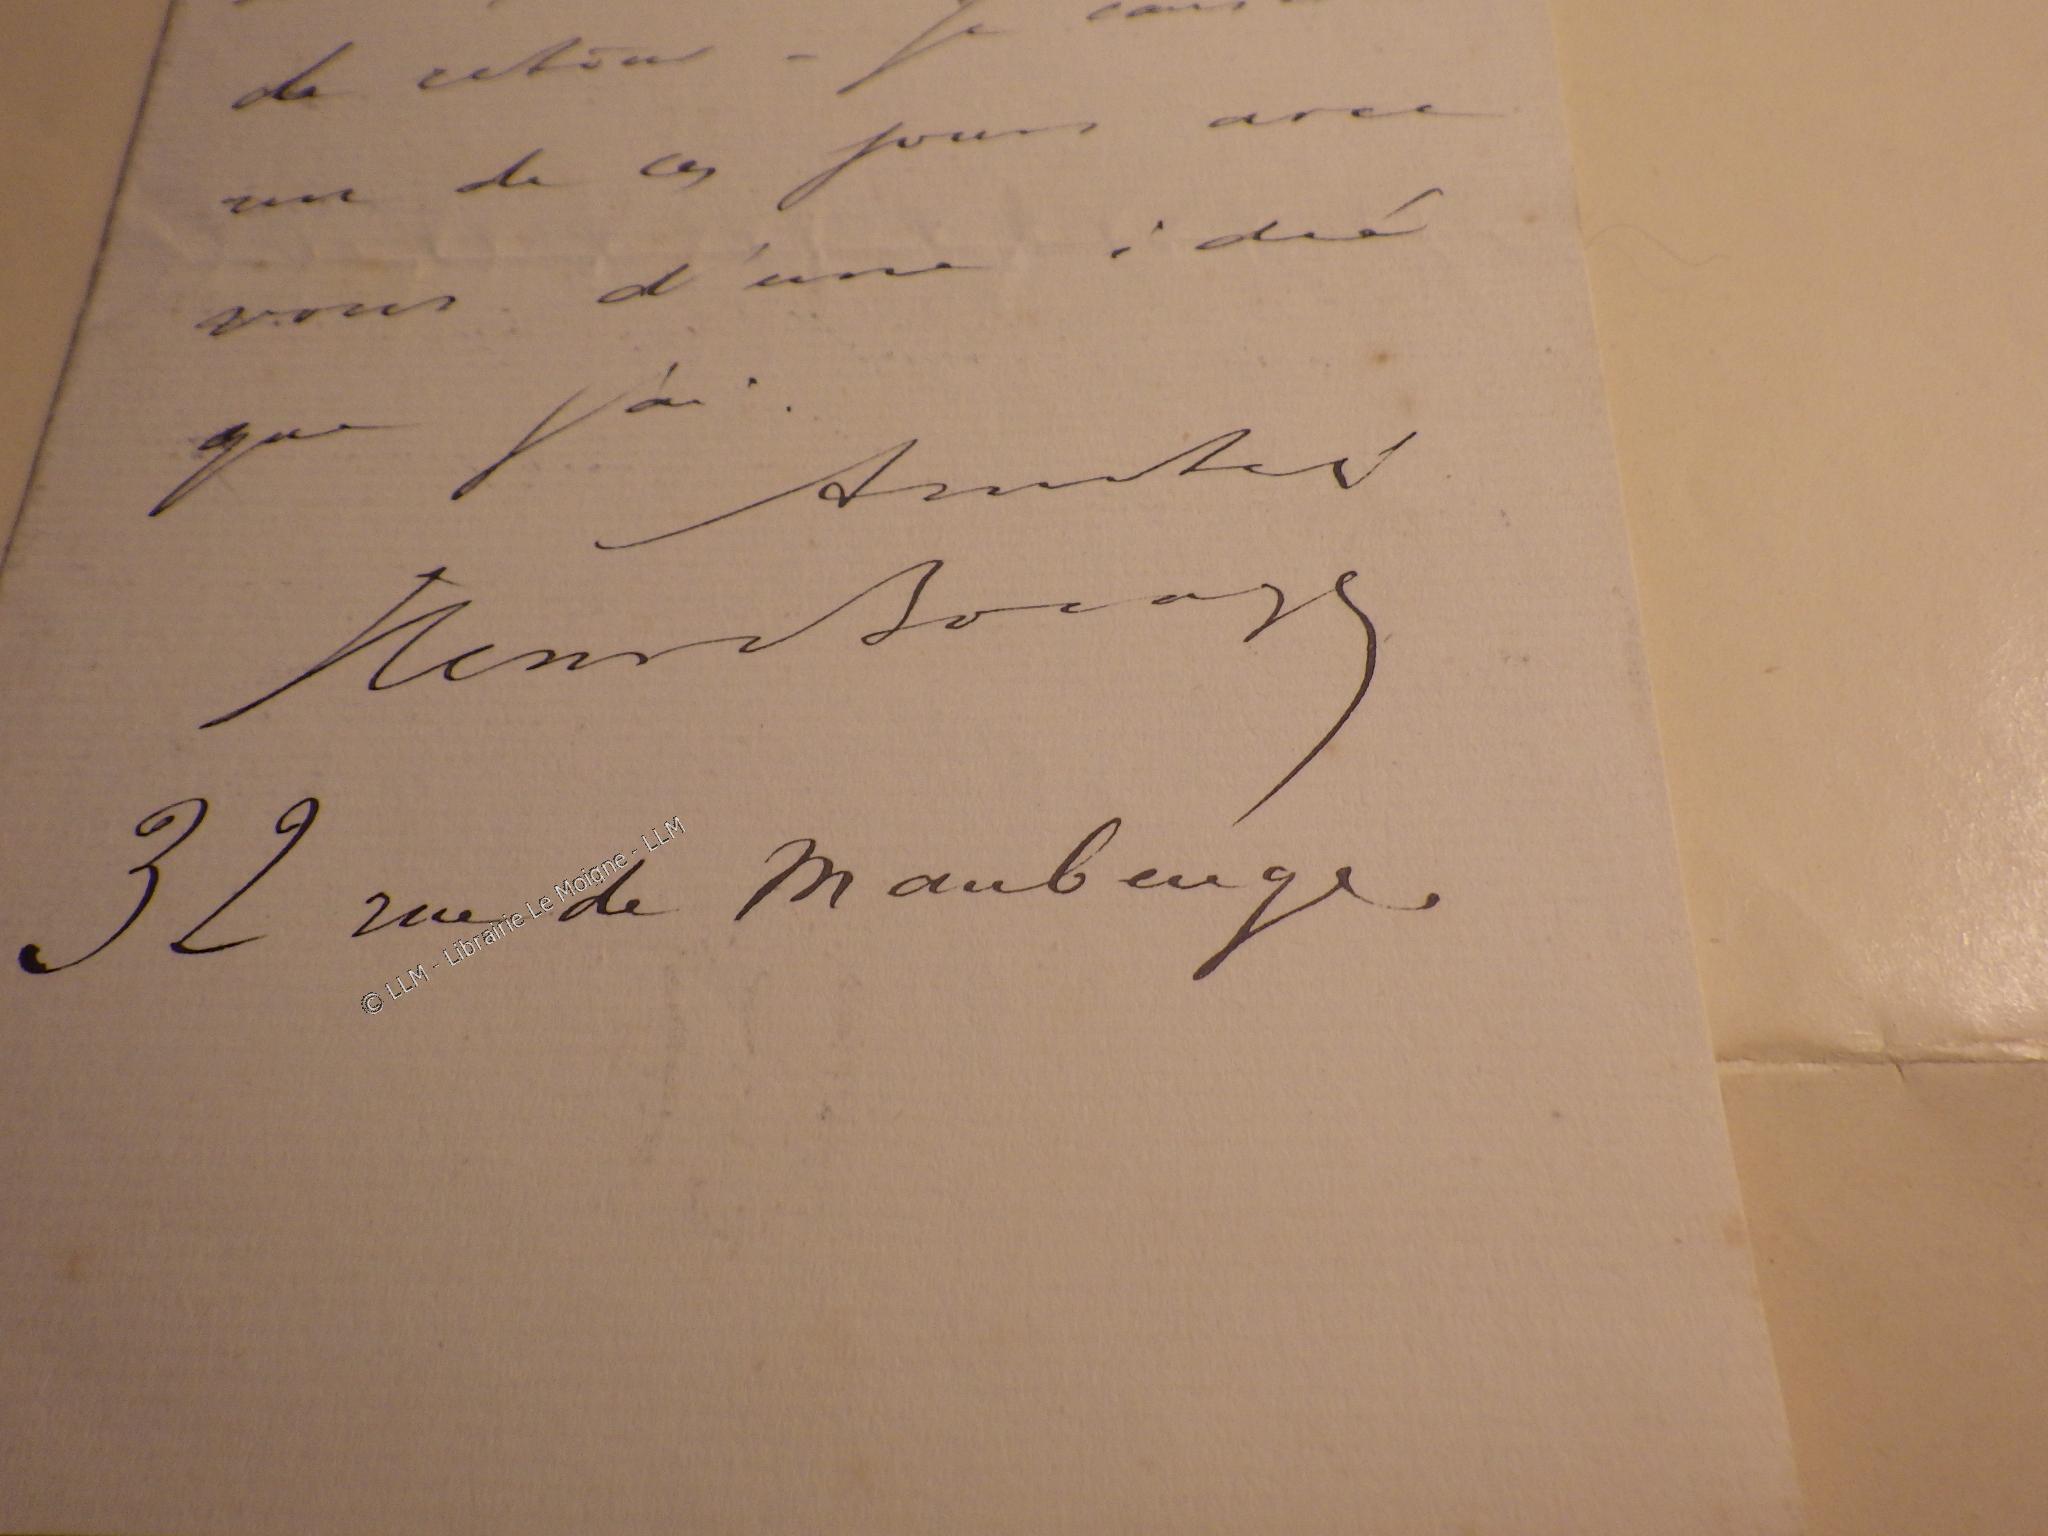 de retour - Je caus
un de ces jours avec
vous d'une idée
que j'ai.
Amitiés
Henri Bocage
32 rue de Maubeuge.
© LLM - Librairie Le Moigne - LLM